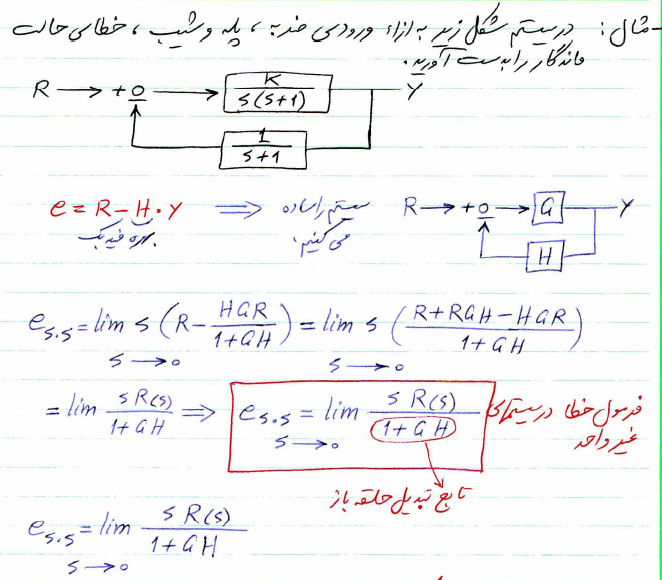 مثال: در سیستم شکل زیر به ازاء ورودی ضربه، پله و شیب، خطای حالت
ماندگار را بدست آورید.
R → +o → K / s(s+1) — Y
1 / s+1
e = R - H·Y ⟹ سیستم را ساده
می کنیم:
بهره فیدبک
R → +o → G — Y
H
e_{s.s} = lim_{s→0} s (R - HGR / 1+GH) = lim_{s→0} s (R+RGH-HGR / 1+GH)
= lim sR(s) / 1+GH ⟹ e_{s.s} = lim_{s→0} sR(s) / 1+GH
فرمول خطا در سیستمهای
غیر واحد
تابع تبدیل حلقه باز
e_{s.s} = lim_{s→0} sR(s) / 1+GH